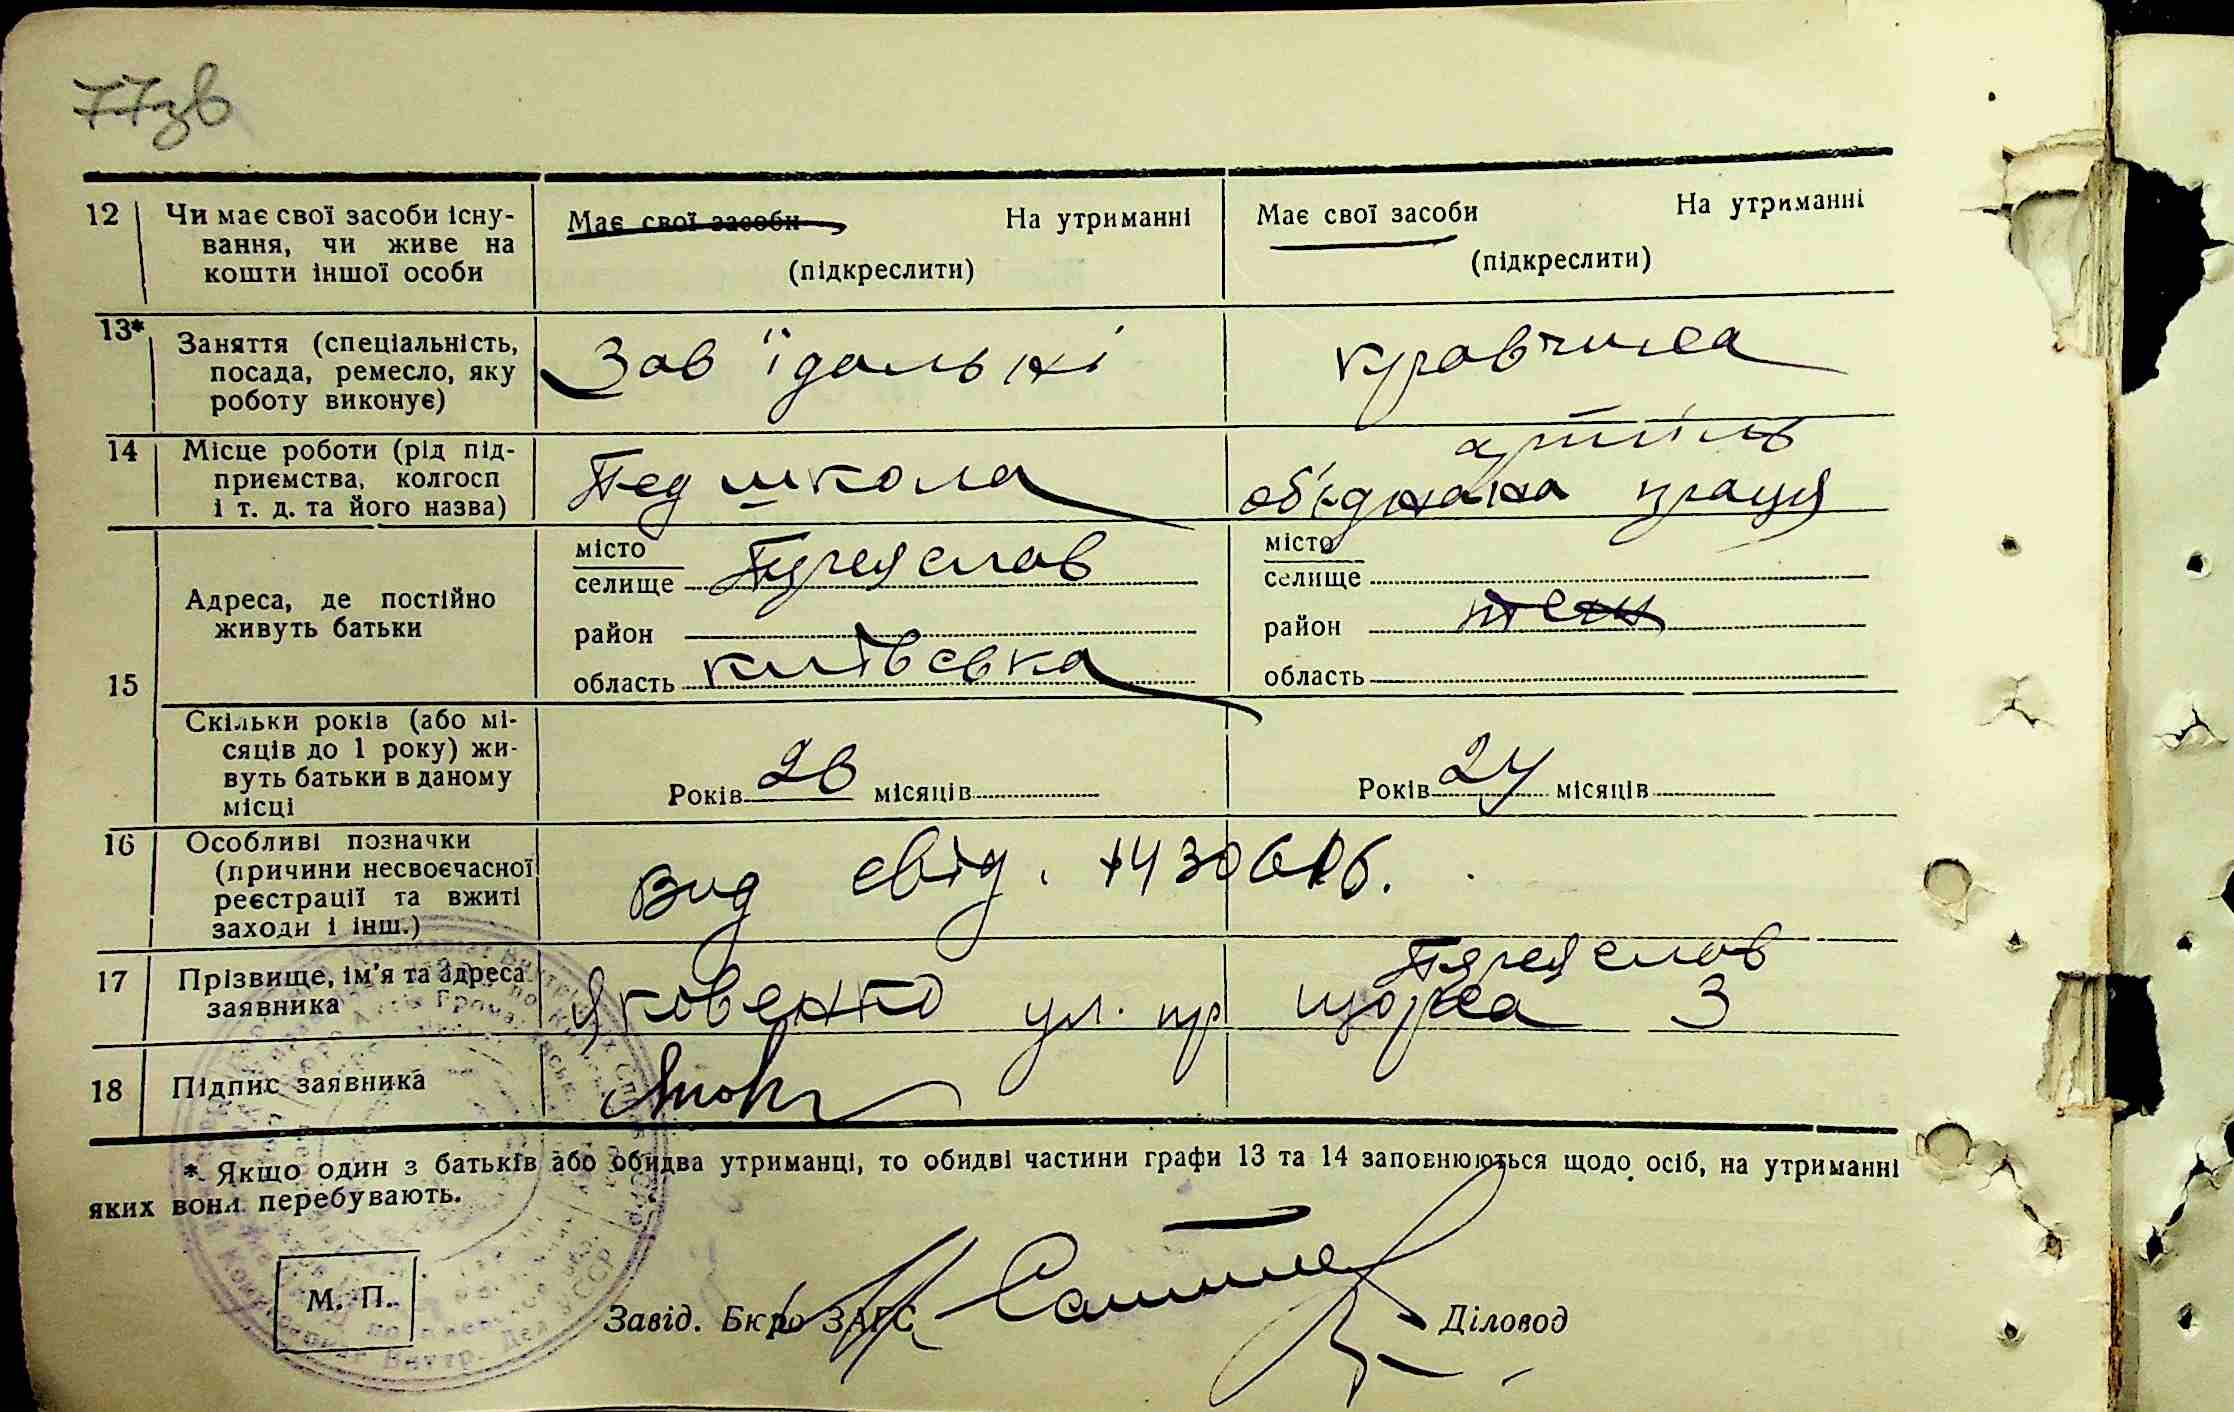 77зв
12 Чи має свої засоби існу-
вання, чи живе на
кошти іншої особи
Має свої засоби На утриманні
(підкреслити)
Має свої засоби На утриманні
(підкреслити)
13* Заняття (спеціальність,
посада, ремесло, яку
роботу виконує)
Зав їдальні
кравчиха
14 Місце роботи (рід під-
приємства, колгосп
і т. д. та його назва)
Педшкола
артіль
об'єднана праця
15 Адреса, де постійно
живуть батьки
місто
селище Переяслав
район
область київська
місто
селище
район
область
Скільки років (або мі-
сяців до 1 року) жи-
вуть батьки в даному
місці
Років 28 місяців
Років 24 місяців
16 Особливі позначки
(причини несвоєчасної
реєстрації та вжиті
заходи і інш.)
Вид свід.
17 Прізвище, ім'я та адреса
заявника
Переяслав
Яковенко ул. пр Щорса 3
18 Підпис заявника
* Якщо один з батьків або обидва утриманці, то обидві частини графи 13 та 14 заповнюються щодо осіб, на утриманні
яких вони перебувають.
М. П.
Завід. Бюро ЗАГС
Діловод